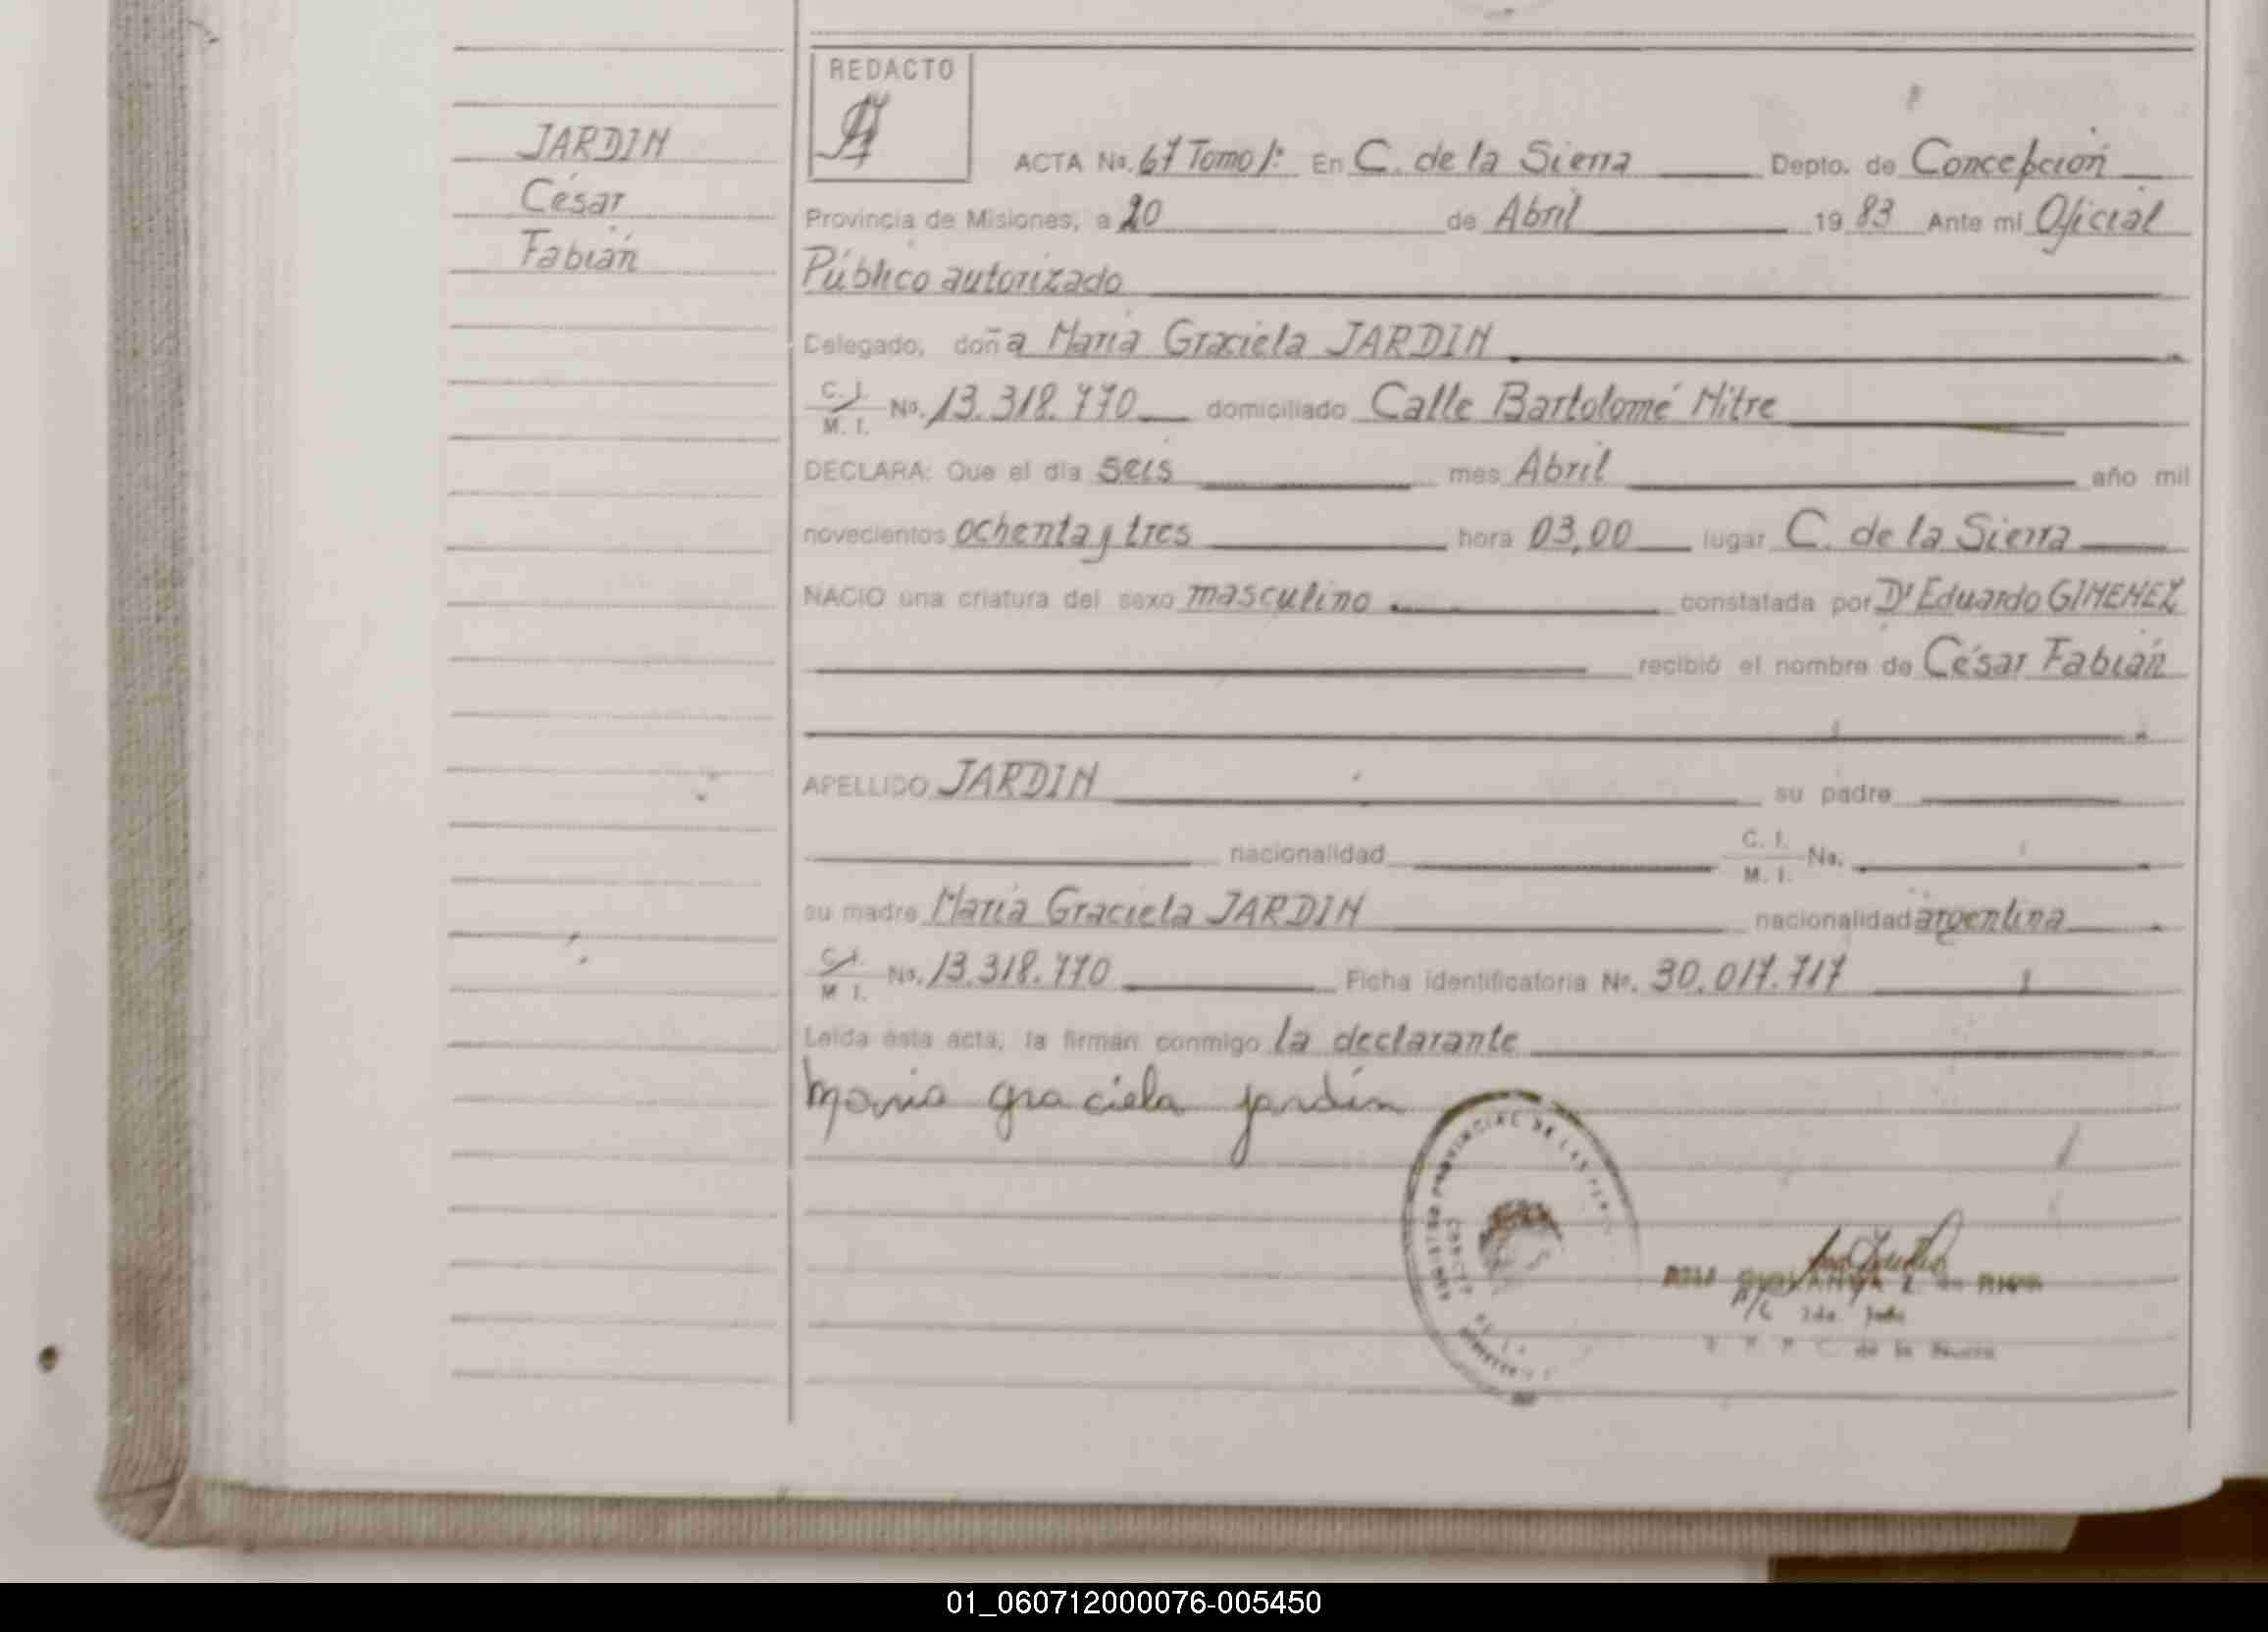 JARDIN
César
Fabián
REDACTO
ACTA No. 67 Tomo 1º En C. de la Sierra Depto. de Concepción
Provincia de Misiones, a 20 de Abril 1983 Ante mí Oficial
Público autorizado
Delegado, doña María Graciela JARDIN
C. I. / M. I. No. 13.318.770 domiciliado Calle Bartolomé Mitre
DECLARA: Que el día seis mes Abril año mil
novecientos ochenta y tres hora 03,00 lugar C. de la Sierra
NACIO una criatura del sexo masculino constatada por Dr Eduardo GIMENEZ
recibió el nombre de César Fabián
APELLIDO JARDIN su padre
nacionalidad C. I. / M. I. No.
su madre María Graciela JARDIN nacionalidad argentina
C. I. / M. I. No. 13.318.770 Ficha identificatoria Nº. 30.017.717
Leída esta acta, la firman conmigo la declarante
Maria graciela jardín
PROVINCIAL DE LAS
de la Sierra
01_060712000076-005450